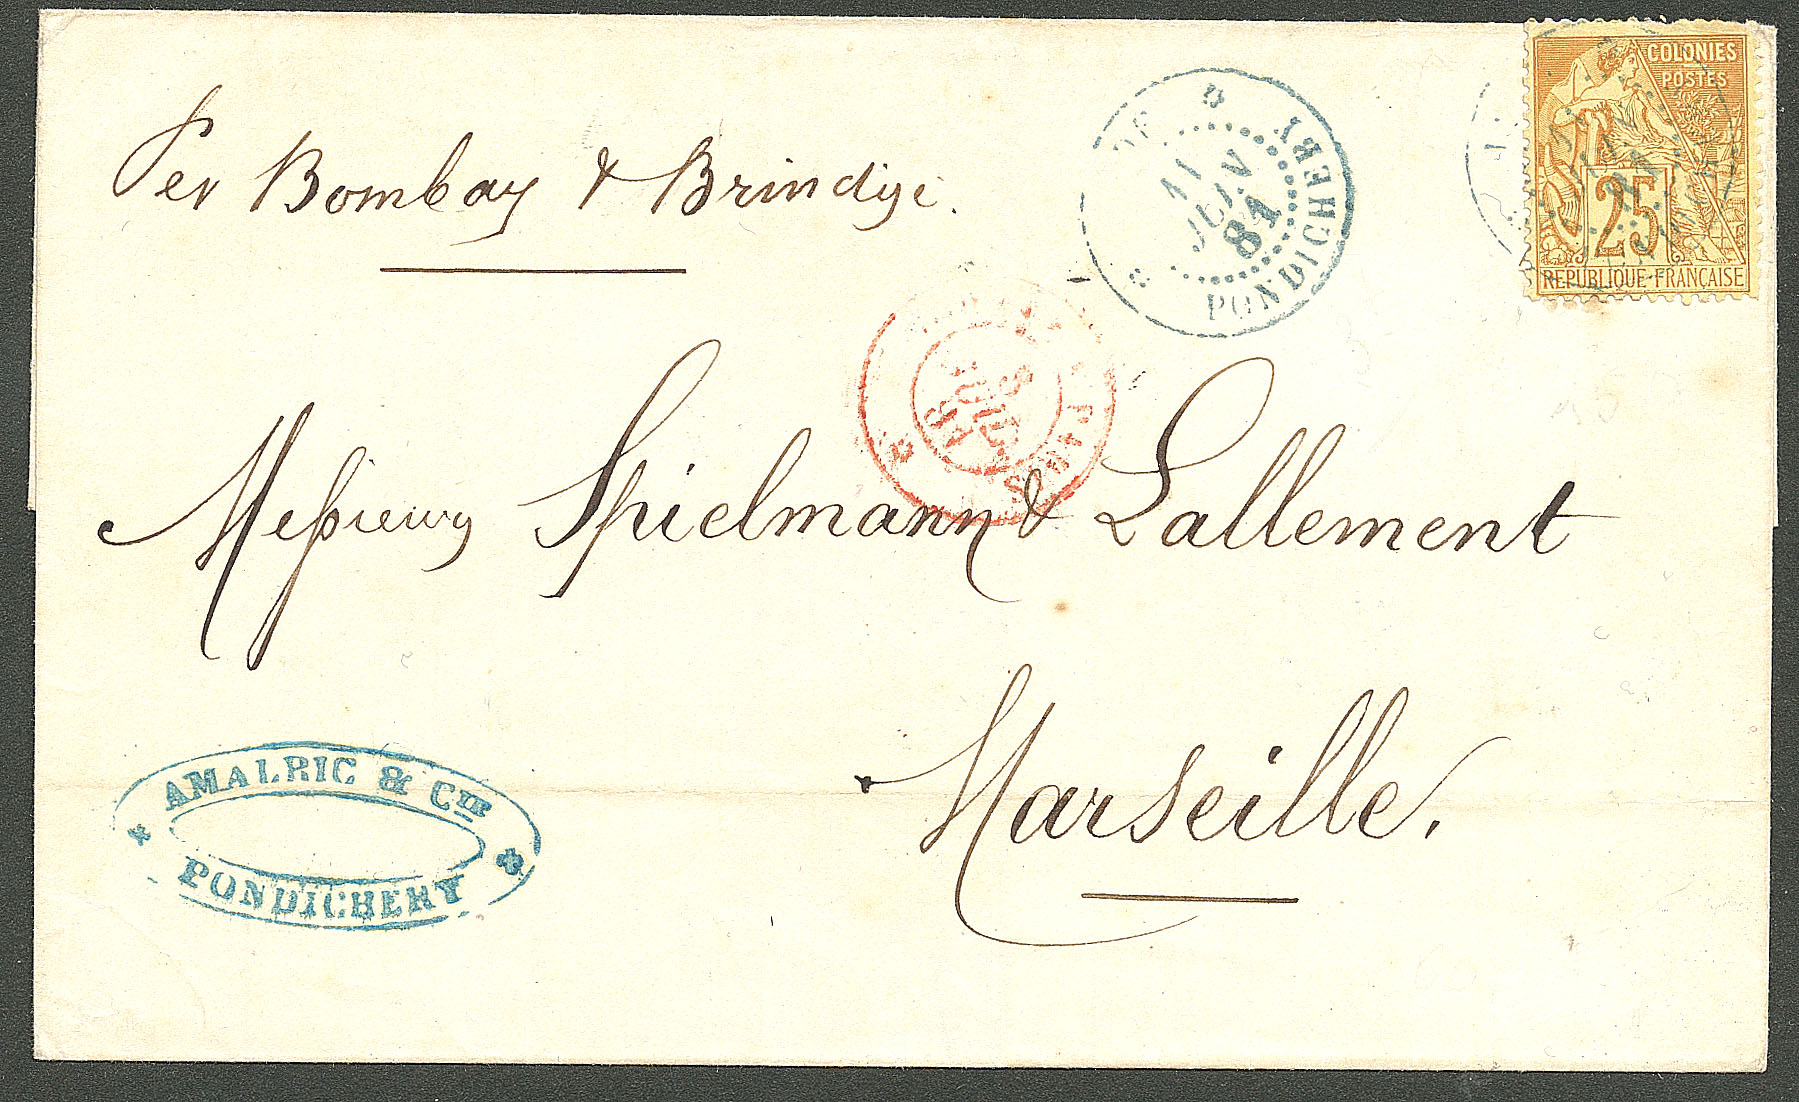 Per Bombay & Brindisi.
11
JUIN
81
PONDICHERY
COLONIES
POSTES
25
REPUBLIQUE FRANÇAISE
Messieurs Spielmann & Lallement
Marseille.
AMALRIC & CIE
PONDICHERY